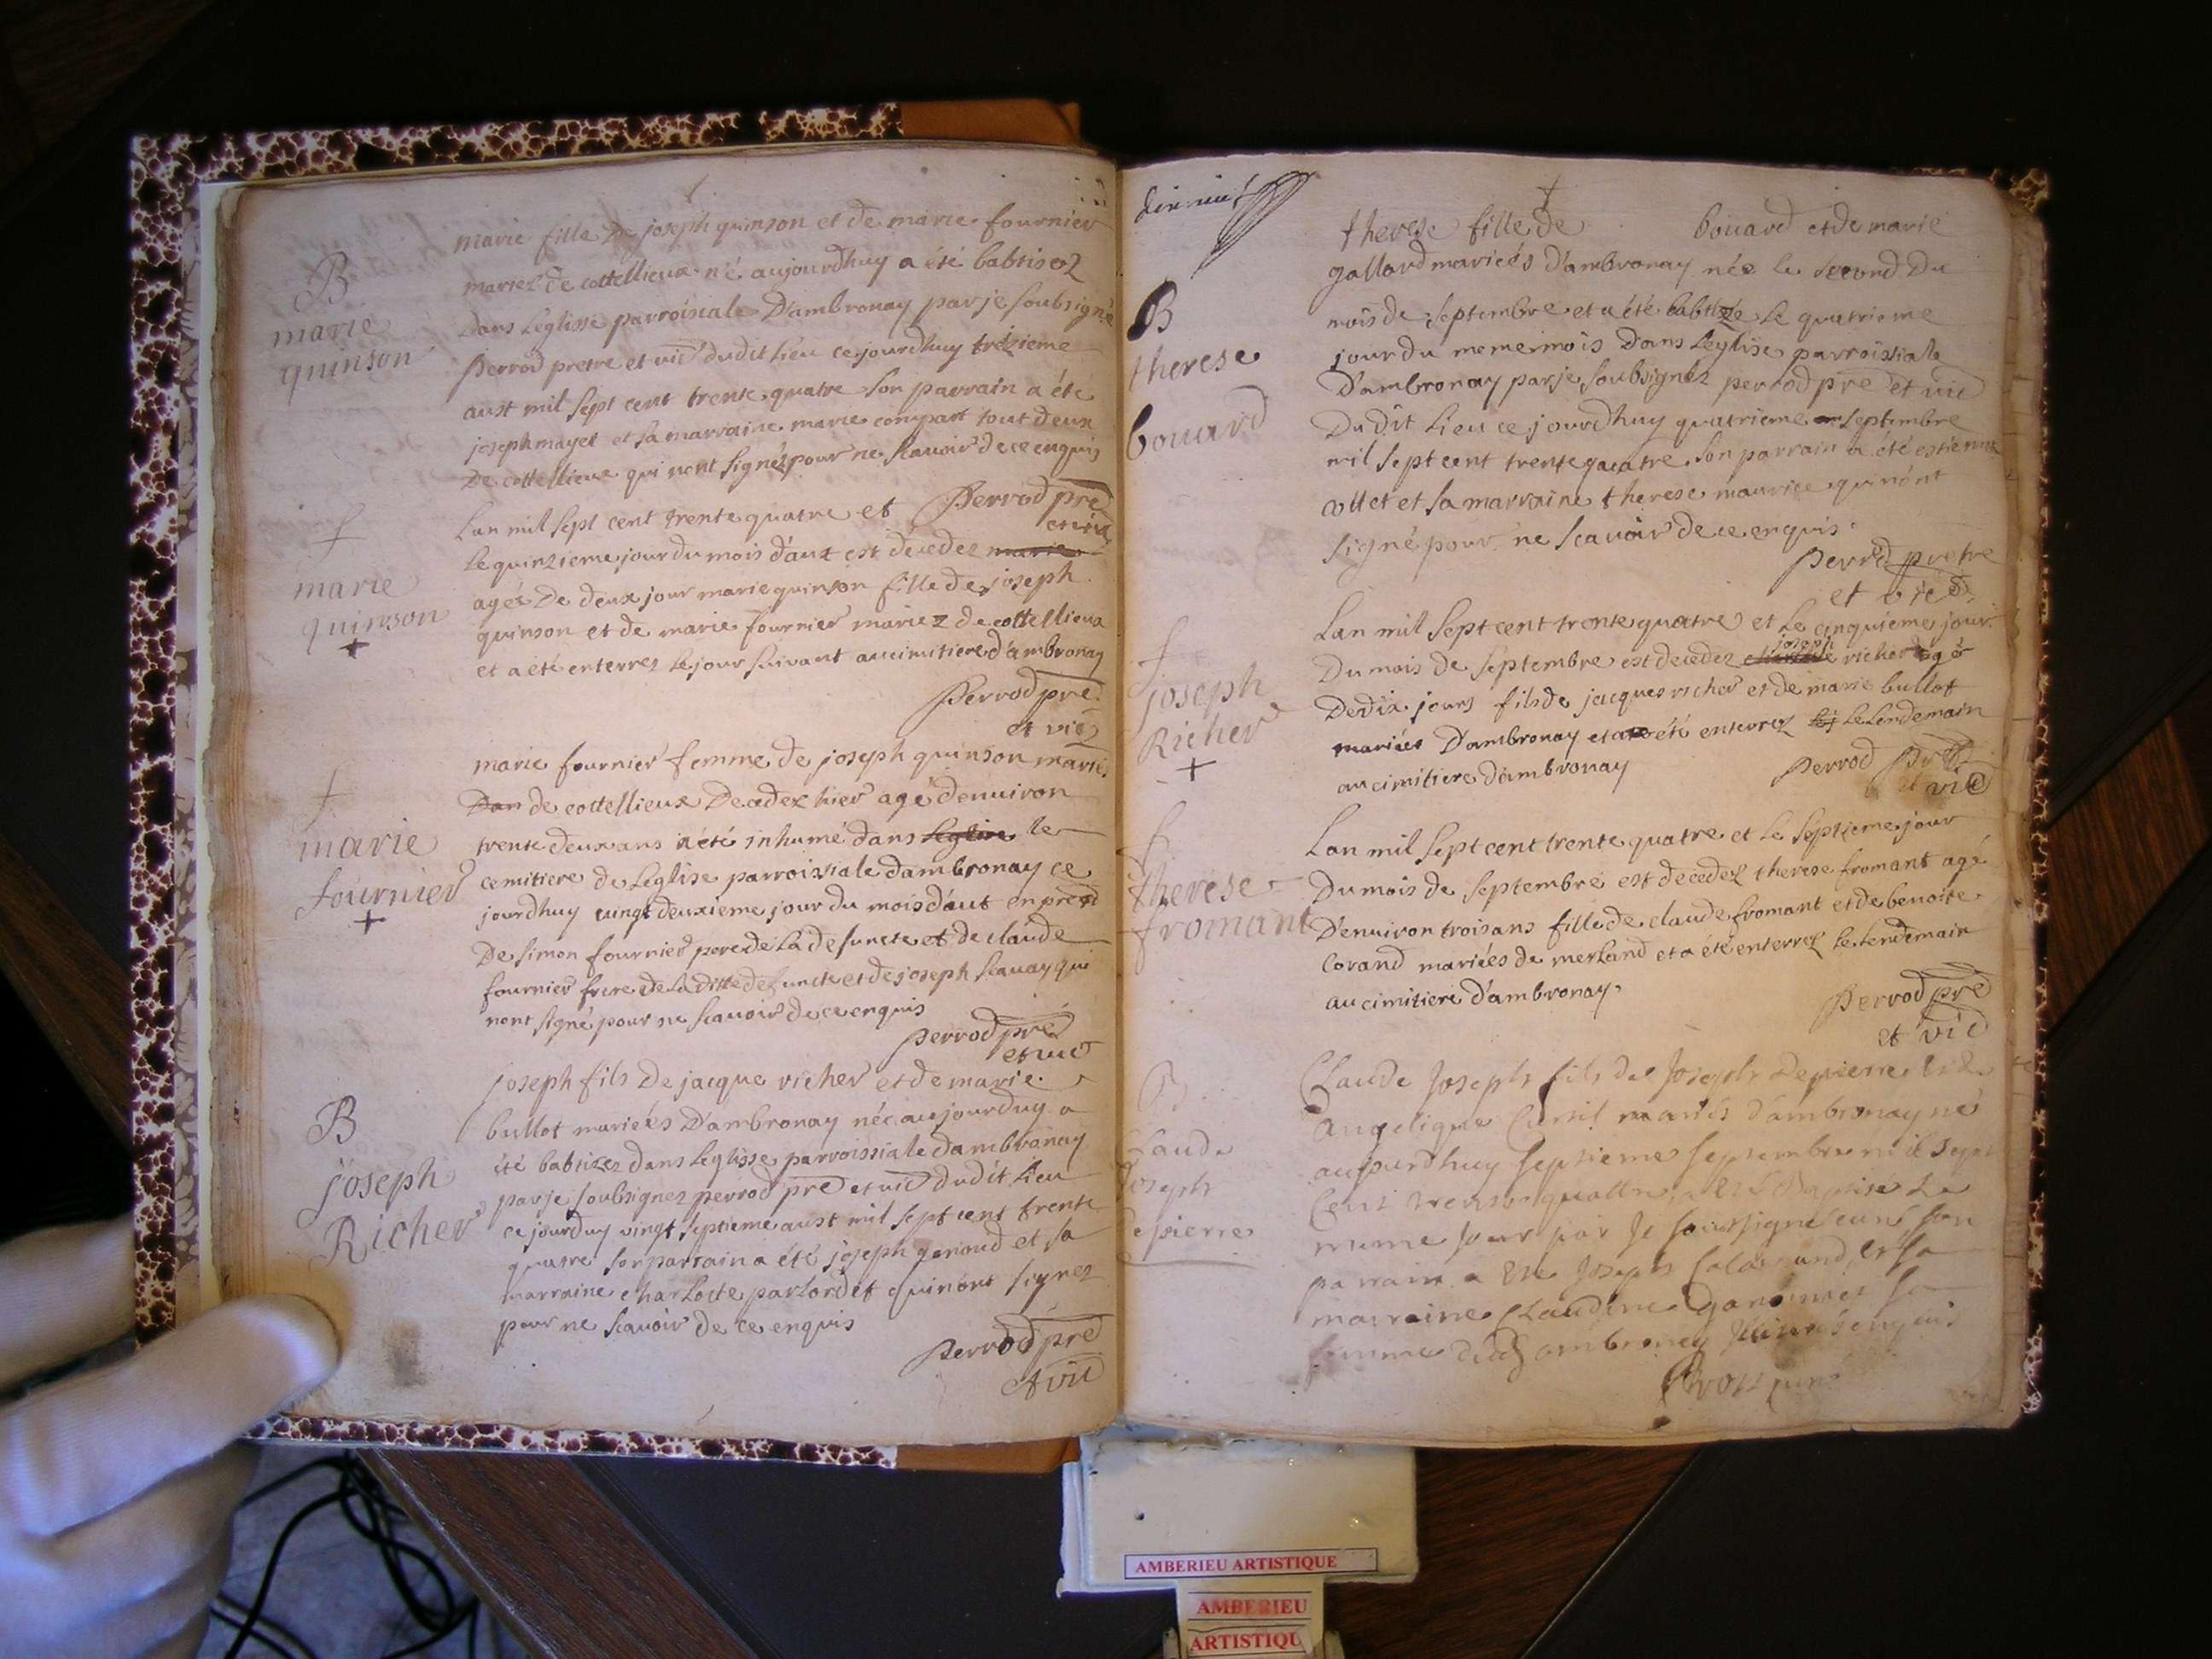 B
marie
quinson
marie fille De joseph quinson et de marie fournier
mariez de cottellieux né aujourdhuy a été babtisez
Dans Leglisse parroissiale D'ambronay par je soubsigné
Perrod pretre et vic dudit lieu ce jourdhuy trézieme
aust mil sept cent trente quatre son parrain a été
joseph mayet et sa marraine marie compart tout deux
De cottellieux qui nont signéz pour ne scauoir de ce enquis
Perrod pre
et vic
f
marie
quinson
+
Lan mil sept cent trente quatre et
Le quinzieme jour du mois d'aux est décedez marie
agés De deux jour marie quinson fille de joseph
quinson et de marie fournier mariez de cottellieux
et a été enterrez le jour suivant au cimitiere d'ambronay
Perrod pre
et vic
f
marie
fournier
+
marie fournier femme de joseph quinson mariés
Dan de cottellieux Decedez hier agé denuiron
trente deux ans a été inhumé dans Leglise le
cemitiere de Leglise parroissiale dambronay ce
jourdhuy vingt deuxieme jour du mois d'aut en presd
De simon fournier pere de La defuncte et de claude
fournier frere de La ditte defuncte et de joseph scauay qui
nont signé pour ne scauoir de ce enquis
Perrod pre
et vic
B
joseph
Richer
joseph fils De jacque richer et de marie
bullot mariées D'ambronay née aujourduy a
été babtizez dans Leglisse parroissiale dambronay
par je soubsignez perrod pre et vic dudit Lieu
ce jourduy vingt septieme aust mil sept cent trente
quatre son parrain a été joseph genoud et sa
marraine charlotte parlordet qui nont signez
pour ne scauoir de ce enquis
Perrod pre
et vic
dix nuf
B
therese
bouard
therese fille de bouard et de marie
gallard mariées D'ambronay née le second Du
mois de septembre et a été babtizée le quatrieme
jour du meme mois Dans Leglise parroissiale
D'ambronay par je soubsignez perrod pre et vic
Du Dit Lieu ce jourdhuy quatrieme septembre
mil sept cent trente quatre son parrain a été estienne
ollet et sa marraine therese maurice qui nont
signé pour ne scauoir de ce enquis
Perrod pretre
et vic
f
joseph
Richer
+
Lan mil sept cent trente quatre et Le cinquiéme jour
joseph
Du mois de septembre est decedez richer agé
De dix jours fils de jacques richer et de marie bullot
mariées D'ambronay et a été enterrez Le Lendemain
au cimitiere dambronay
Perrod pre
et vic
f
therese
fromant
Lan mil sept cent trente quatre et Le septieme jour
Du mois de septembre est decedez therese fromant agé
D'enuiron trois ans fille de claude fromant et de benoite
Corand mariées de merland et a été enterrez le Lendemain
au cimitiere d'ambronay
Perrod pre
et vic
B
Claude
Joseph
Depierre
Claude Joseph fils de Joseph Depierre et de
Angelique mariés d'ambronay né
aujourdhuy septieme septembre mil sept
Cent trente quattre, a été baptise le
meme jour par Je soussigné curé, son
parrain a été Joseph et sa
marraine Claudine sa
femme dud ambronay
curé
AMBERIEU ARTISTIQUE
AMBERIEU
ARTISTIQU